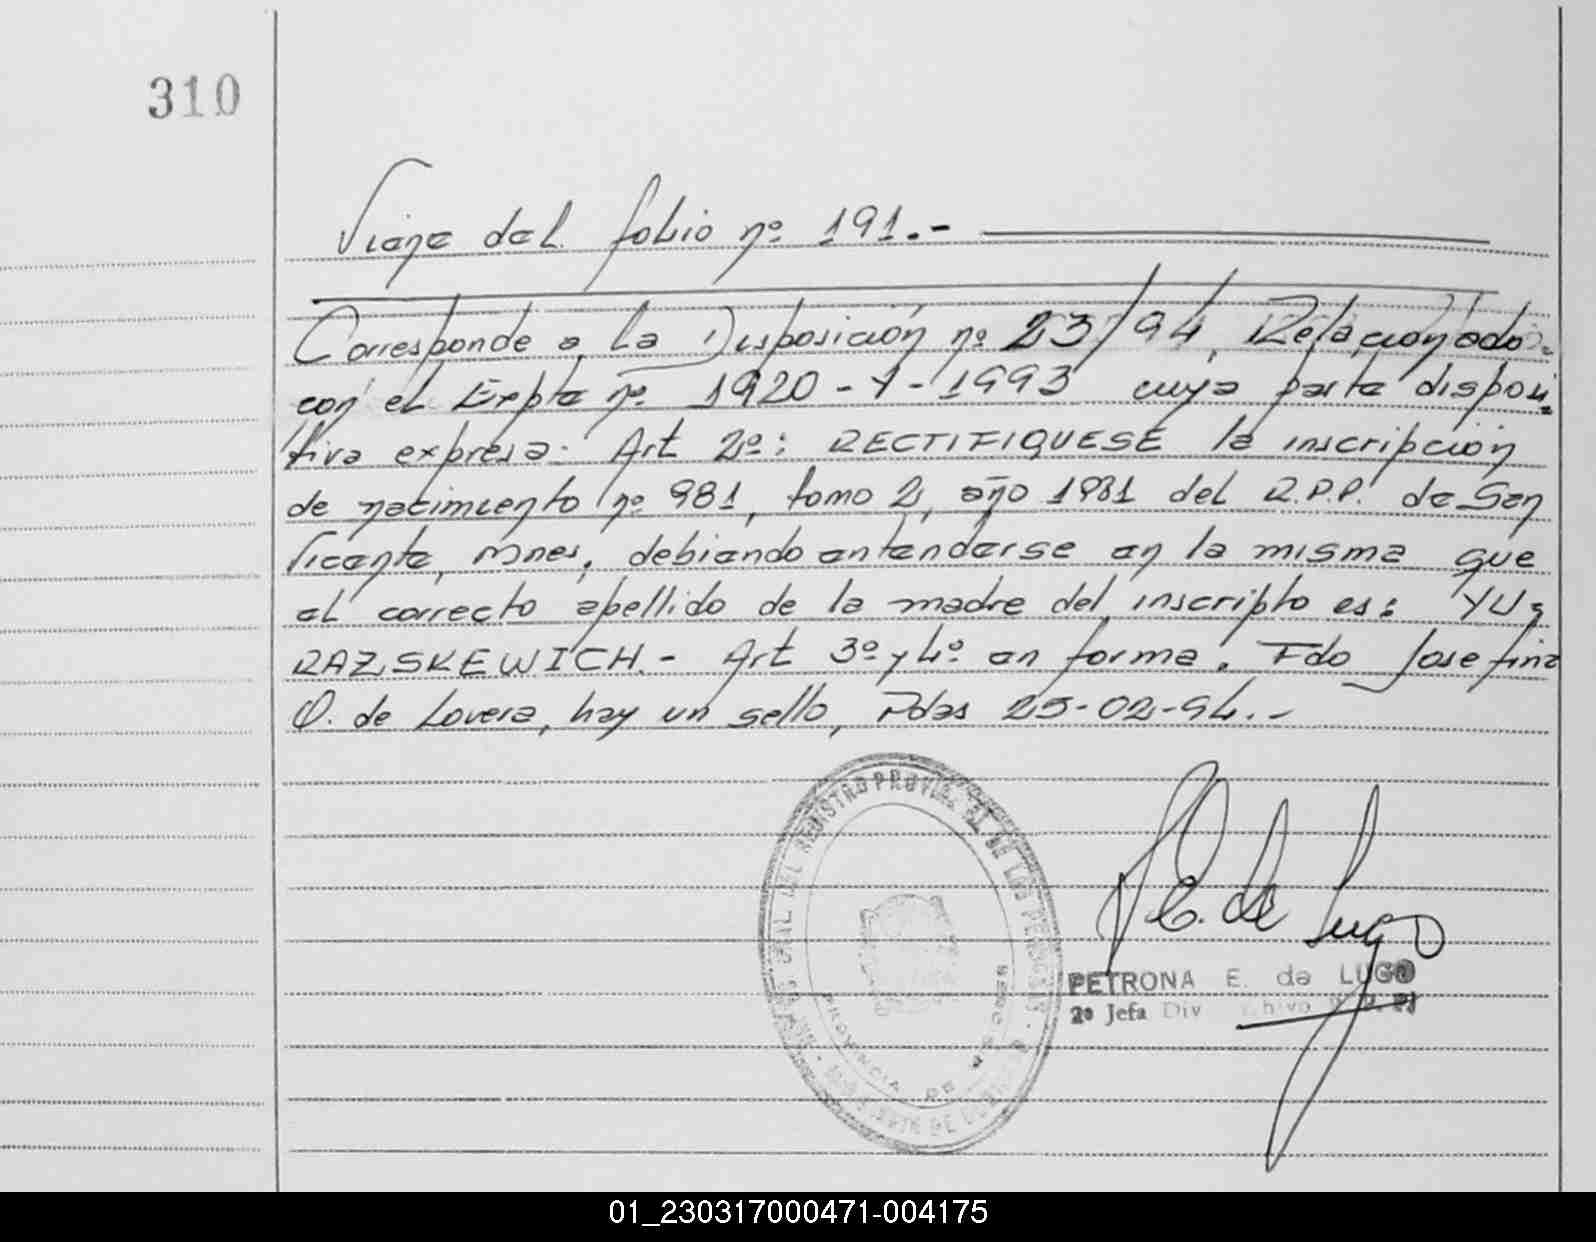 310
Viene del folio nº 191.-
Corresponde a la Disposición nº 23/94, Relacionado
con el Expte nº 1920-Y-1993 cuya parte disposi-
tiva expresa. Art 2º: RECTIFIQUESE la inscripción
de nacimiento nº 981, tomo 2, año 1981 del R.P.P. de San
Vicente, Mnes, debiendo entenderse en la misma que
el correcto apellido de la madre del inscripto es: YU
RAZSKEWICH.- Art 3º y 4º en forma. Fdo Josefina
O. de Lovera, hay un sello, Pdas 25-02-94.-
DEL REGISTRO PROVINCIAL DE LAS PERSONAS
PROVINCIA DE MISIONES
P E. de Lugo
PETRONA E. de LUGO
2º Jefa Div
01_230317000471-004175